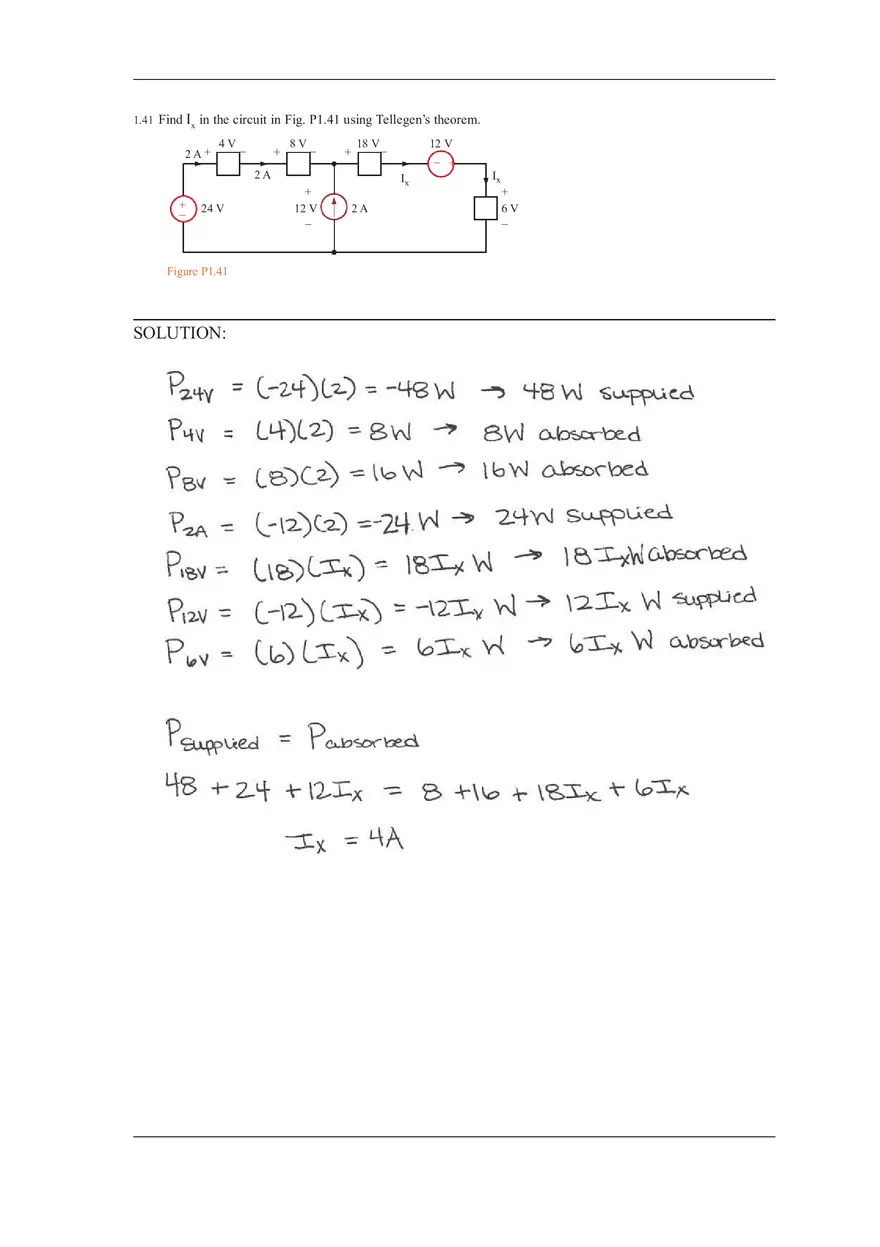 1.41 Find Ix in the circuit in Fig. P1.41 using Tellegen's theorem.
4 V 8 V 18 V 12 V
2 A + − + − + −
2 A Ix − + Ix
+ +
+ − 24 V 12 V 2 A 6 V
− −
Figure P1.41
SOLUTION:
P24V = (-24)(2) = -48 W → 48 W supplied
P4V = (4)(2) = 8W → 8W absorbed
P8V = (8)(2) = 16 W → 16 W absorbed
P2A = (-12)(2) = -24. W → 24W supplied
P18V = (18)(Ix) = 18Ix W → 18IxW absorbed
P12V = (-12)(Ix) = -12Ix W → 12Ix W supplied
P6V = (6)(Ix) = 6Ix W → 6Ix W absorbed
Psupplied = Pabsorbed
48 + 24 + 12Ix = 8 + 16 + 18Ix + 6Ix
Ix = 4A